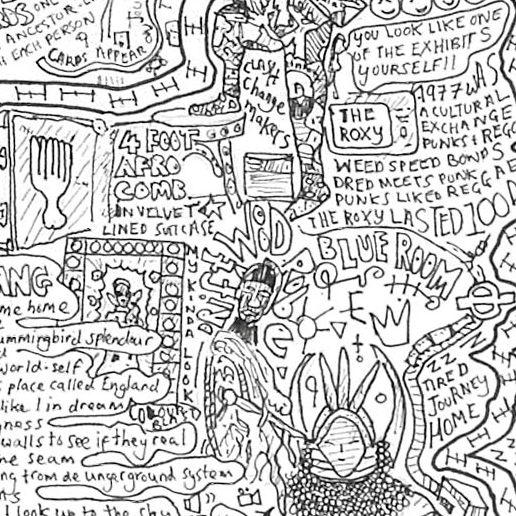 DS ONE
ANCESTOR
EACH PERSON
CARDS APPEAR
YOU LOOK LIKE ONE
OF THE EXHIBITS
YOURSELF!!
CLAY
Change
makers
THE
ROXY
1977 WAS
A CULTURAL
EXCHANGE
PUNKS & REGG
WEED SPEED BONDS
DRED MEETS PUNK
PUNKS LIKED REGGAE
THE ROXY LASTED 100
4 FOOT
AFRO
COMB
IN VELVET
LINED SUITCASE
DRIFT WOOD
BLUE ROOM
MY KINDA LOOK
ANG
me home
ummingbird splendour
world-self
s place called England
like I in dream
COLOURIST
BLAST
gness
walls to see if they real
ne seam
ng from de ungerground system
I look up to the sky
ZZ
TIRED
JOURNEY
HOME
ZZ